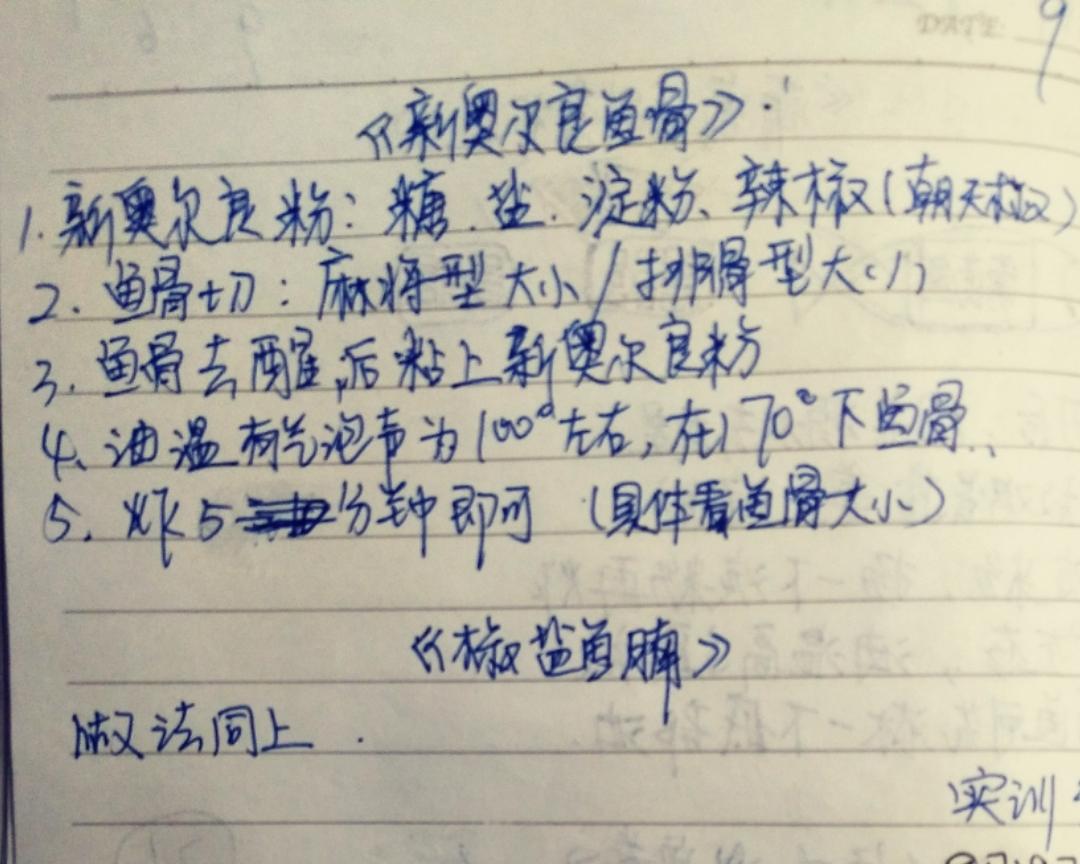 DATE 9
《新奥尔良鱼骨》.
1. 新奥尔良粉：糖、盐、淀粉、辣椒（朝天椒）
2. 鱼骨切：麻将型大小/排骨型大小
3. 鱼骨去腥后粘上新奥尔良粉
4、油温有气泡声为100°左右，在170°下鱼骨
5. 炸5分钟即可（具体看鱼骨大小）
《椒盐鱼腩》
做法同上.
实训